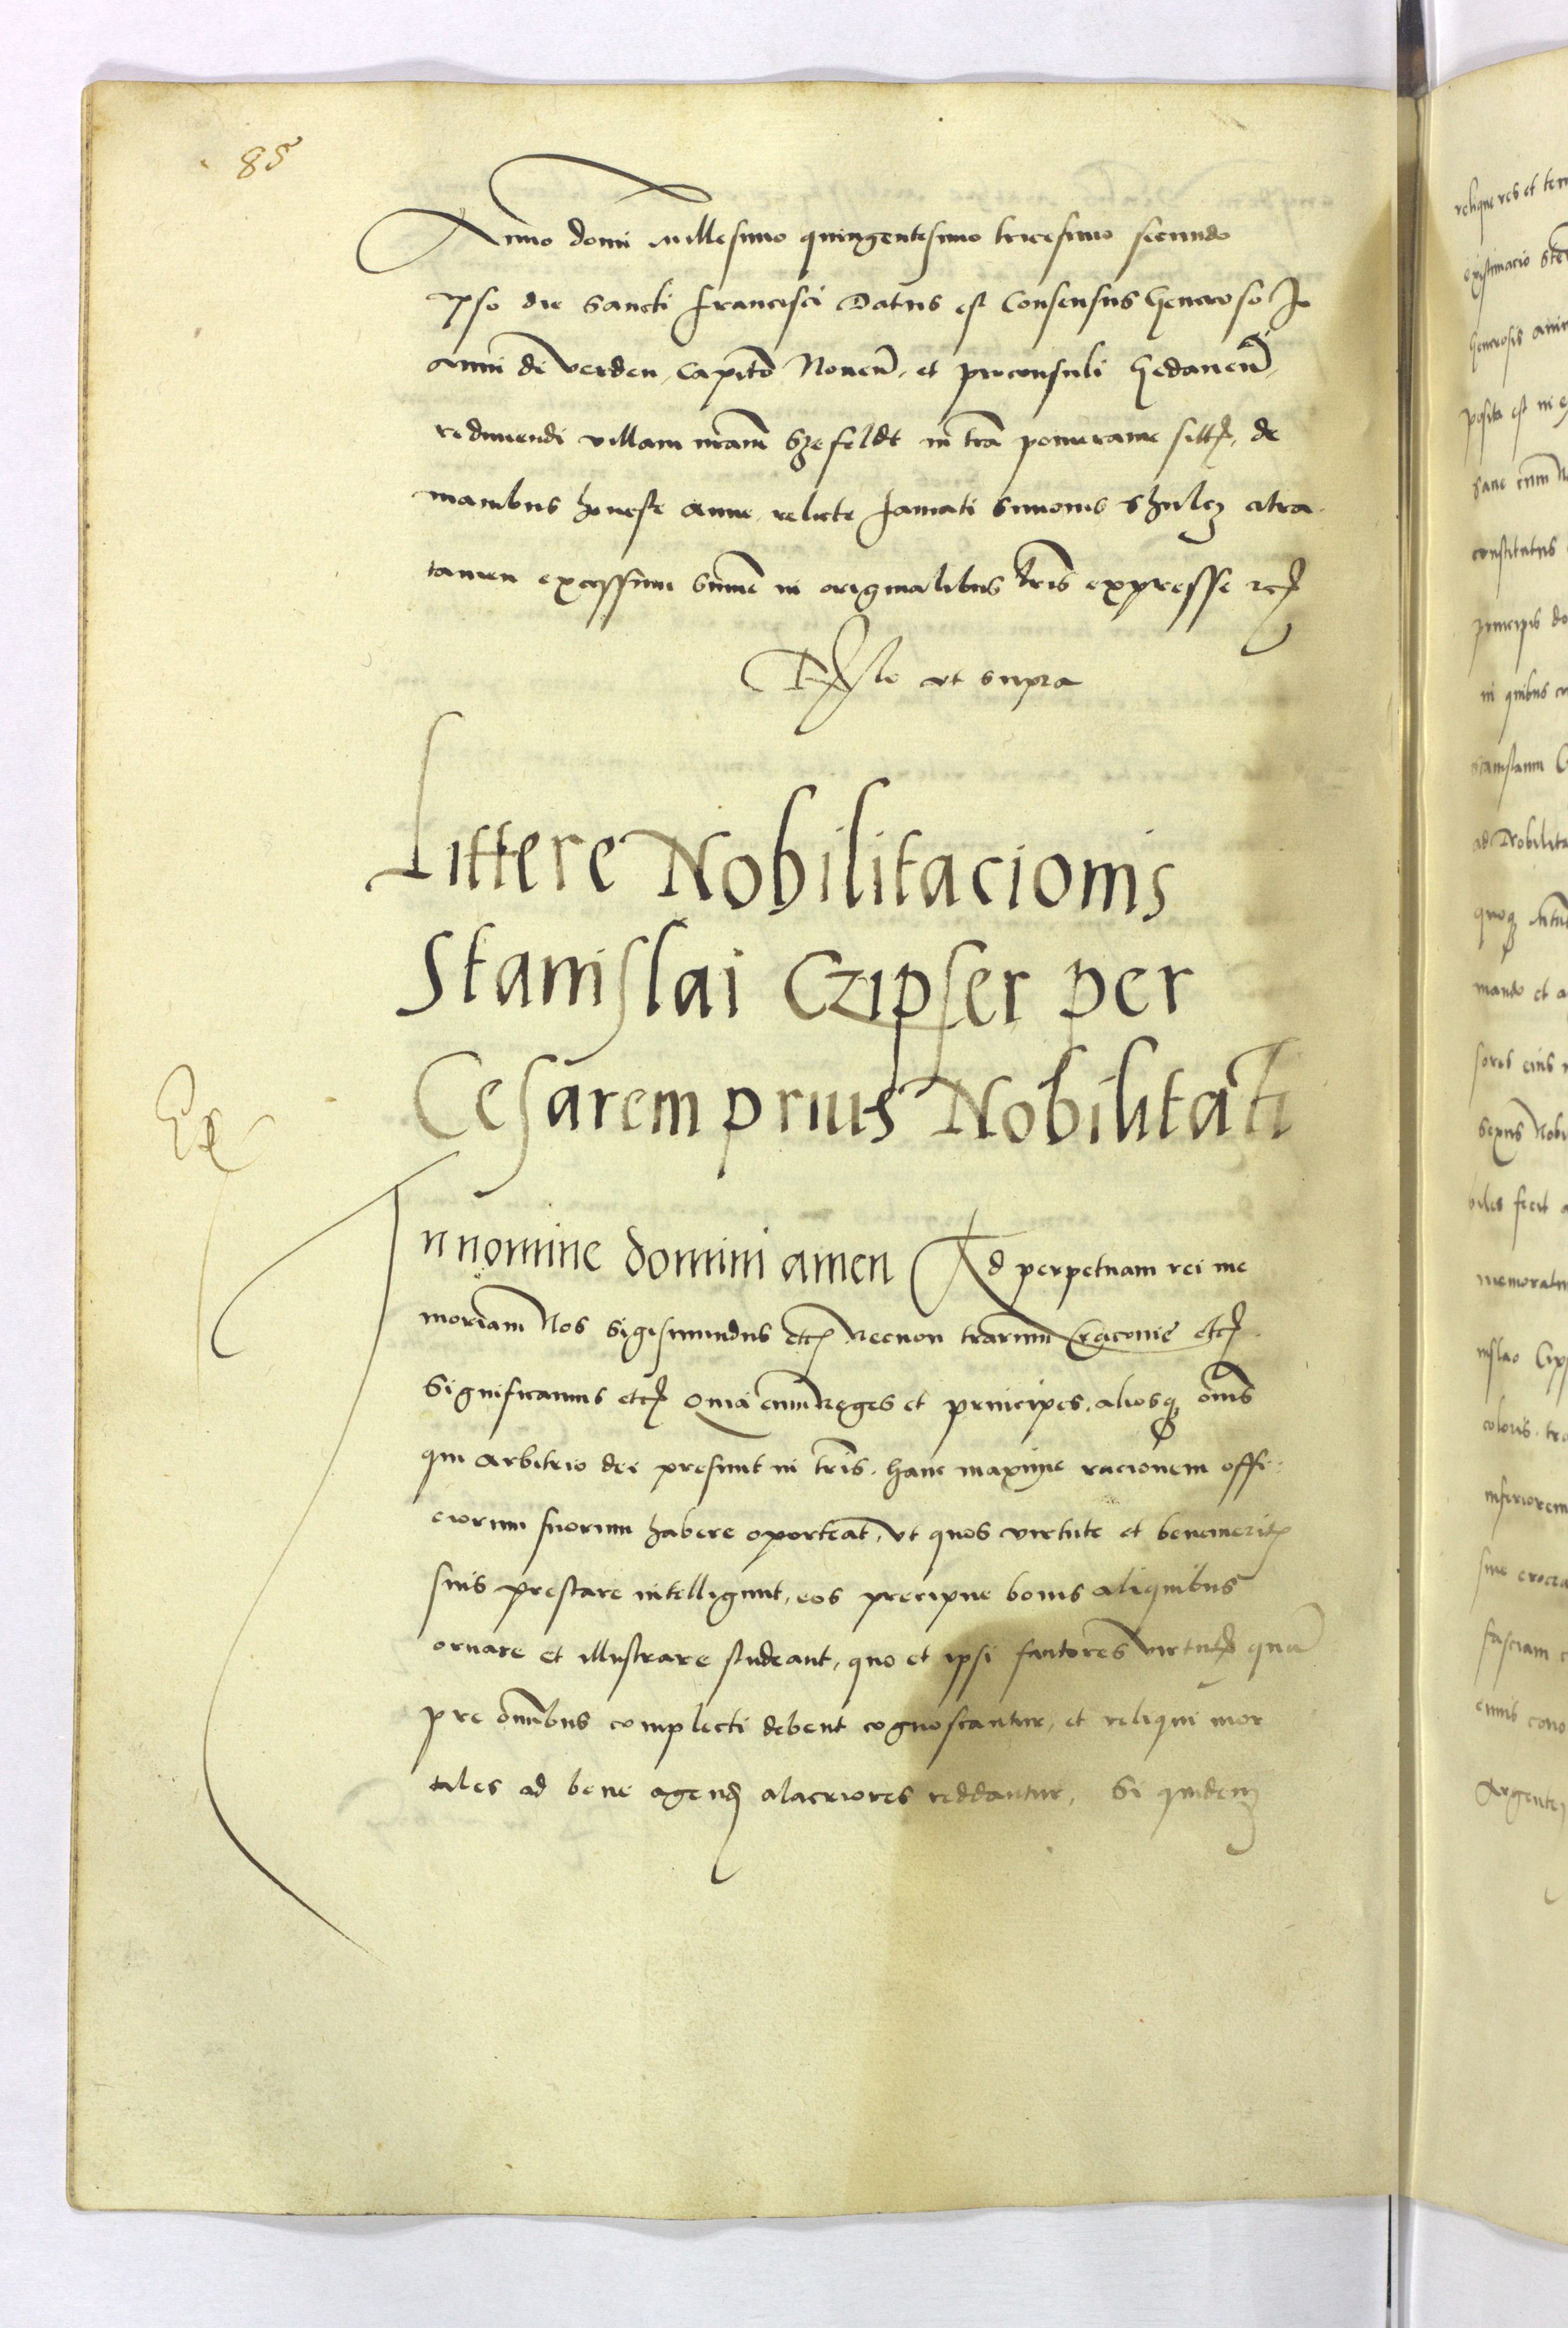 85
Anno domi millesimo quingentesimo tricesimo secundo
ipso die Sancti Francisci Datus est Consensus Generoso Jo
anni de verden, Capito Noven, et proconsuli Gedanen,
redimendi villam nram Szefeldt in tra pomeranie sitt, de
manibus honeste anne relicte famati Simonis Shulcz citra
tamen excessum sume in originalibus lris expresse etc
Rlo ut supra
Littere Nobilitacionis
Stanislai Czipser per
Cesarem prius Nobilitati
In nomine domini amen Ad perpetuam rei me
moriam Nos Sigismundus etc Necnon trarum Cracovie etc
Significamus etc Quia cum Reges et principes, aliosq omes
qui arbitrio dei presunt in tris, hanc maxime racionem offi
ciorum suorum habere oporteat, ut quos virtute et benemerit
suis prestare intelligunt, eos precipue bonis aliquibus
ornare et illustrare studeant, quo et ipsi fautores virtut qua
pre omnibus complecti debent cognoscantur, et reliqui mor
tales ad bene agend alacriores reddantur, Si quidem
relique res et
existimacio
Generosis
posita est in
sane cum
constitutus
principis do
in quibus
ad Nobilita
quoq
mando et a
sores eius
sexus Nobi
biles fecit a
memorat
coloris
inferiorem
sive
fasciam
Argente